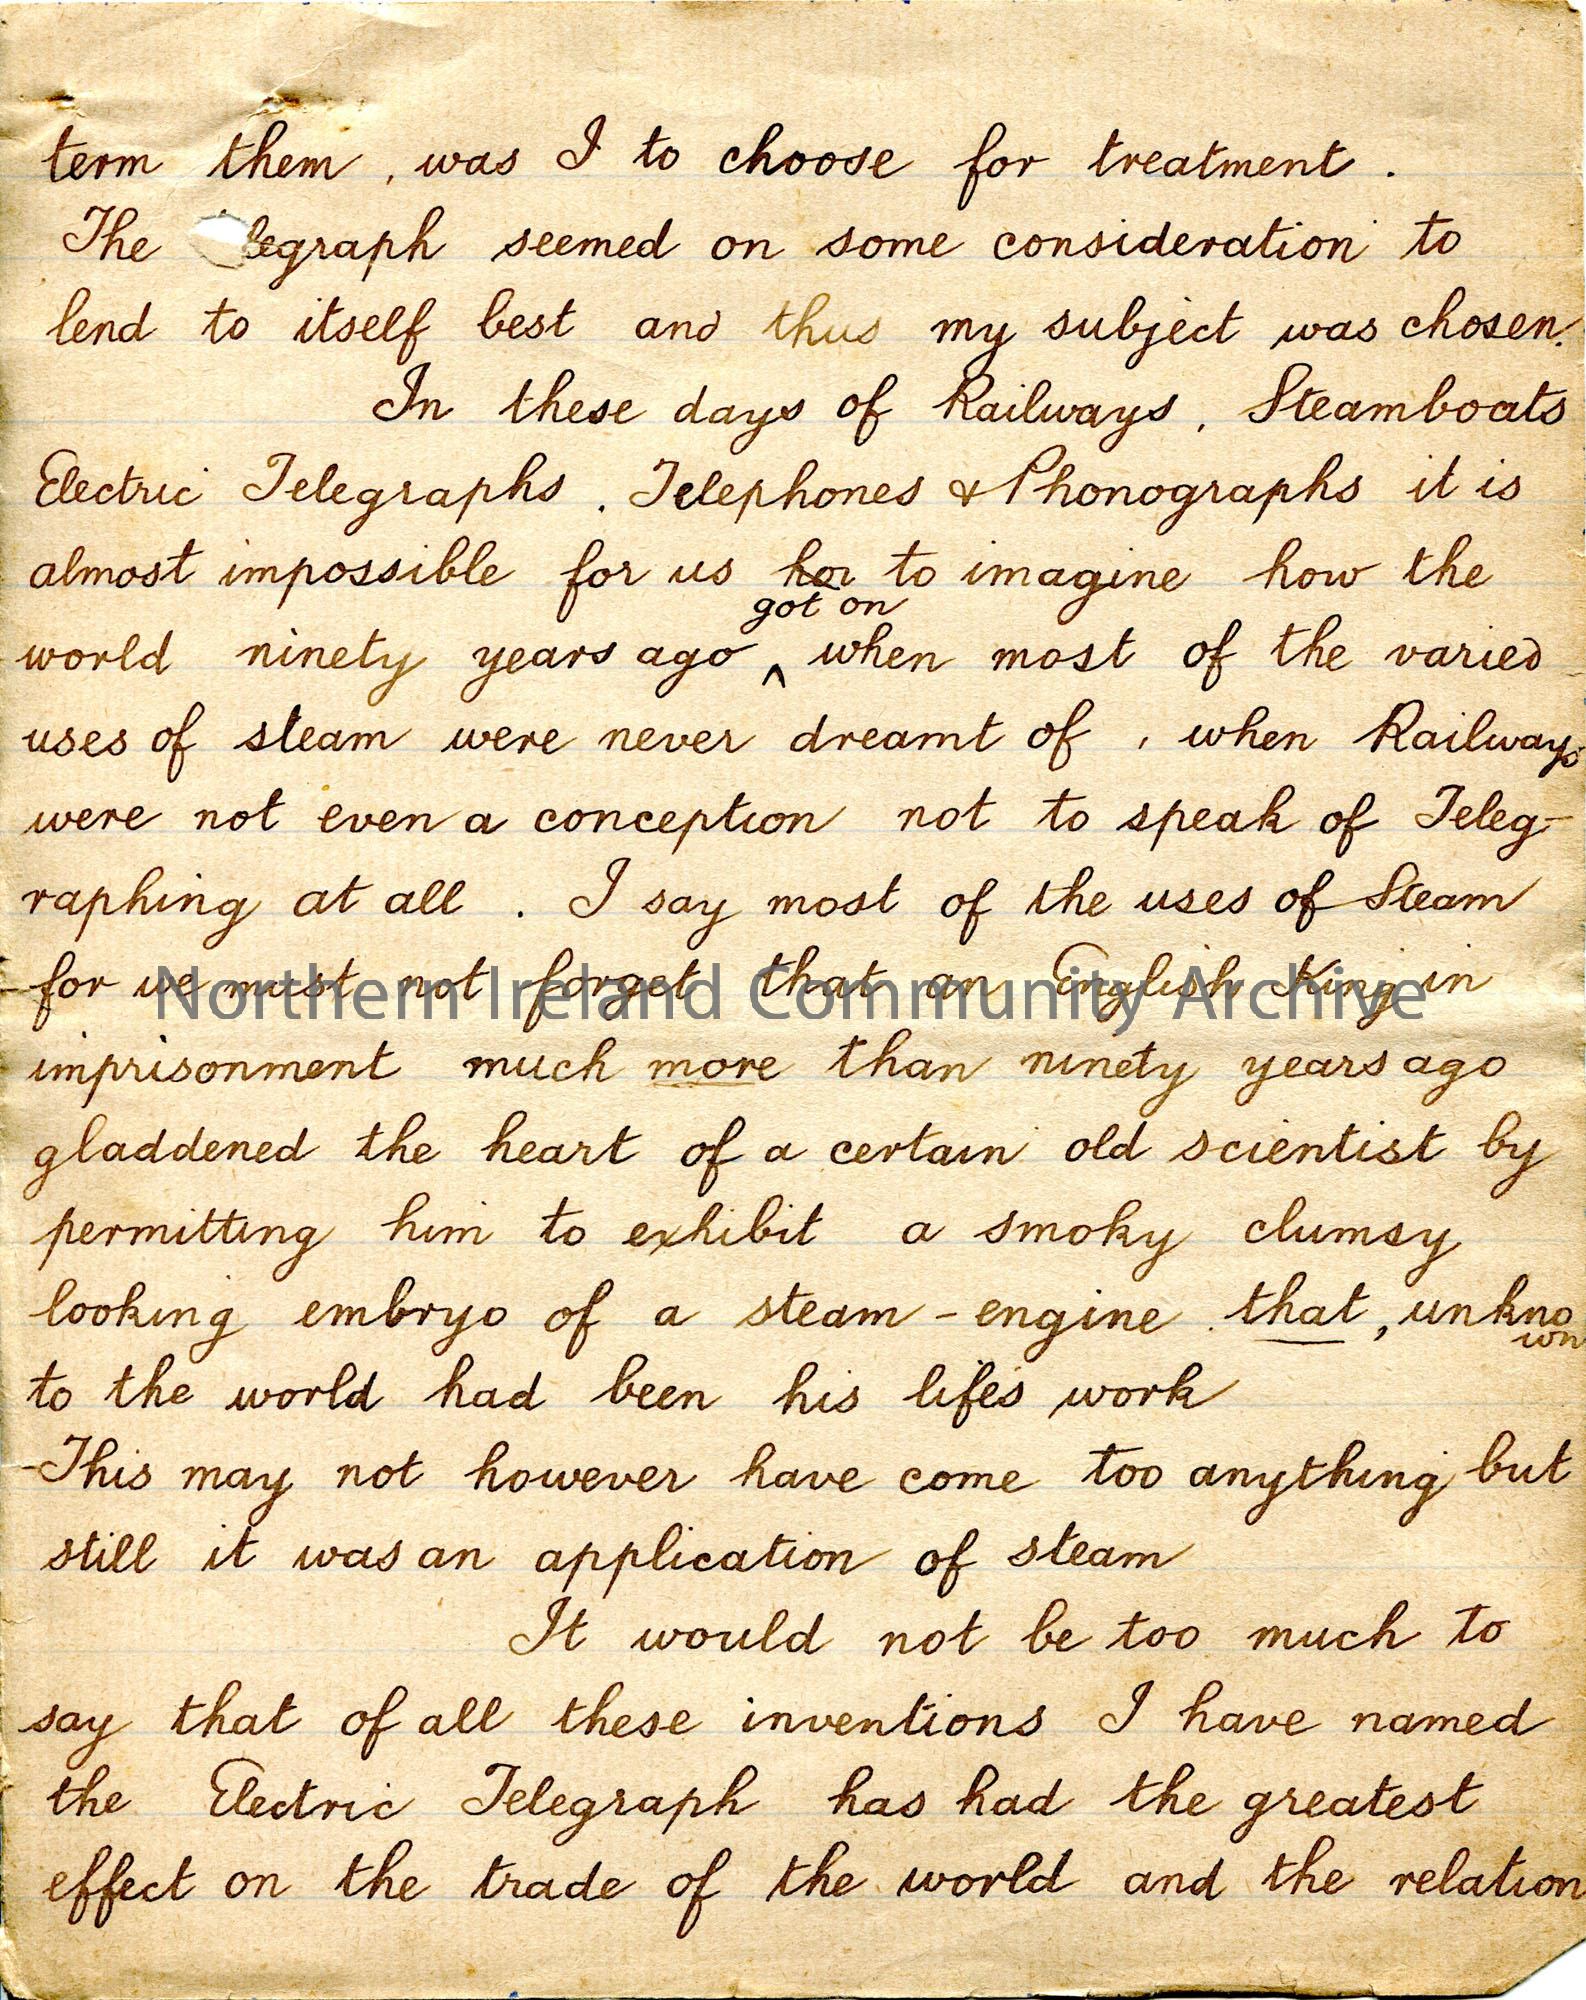 term them, was I to choose for treatment.
The legraph seemed on some consideration to
lend to itself best and thus my subject was chosen.
In these days of Railways, Steamboats
Electric Telegraphs. Telephones & Phonographs it is
almost impossible for us hor to imagine how the
got on
world ninety years ago ^ when most of the varied
uses of steam were never dreamt of, when Railways
were not even a conception not to speak of Teleg-
raphing at all. I say most of the uses of Steam
for we must not forget that an English King in
Northern Ireland Community Archive
imprisonment much more than ninety years ago
gladdened the heart of a certain old scientist by
permitting him to exhibit a smoky clumsy
looking embryo of a steam-engine that, unkno
wn
to the world had been his lifes work
This may not however have come too anything but
still it was an application of steam
It would not be too much to
say that of all these inventions I have named
the Electric Telegraph has had the greatest
effect on the trade of the world and the relation